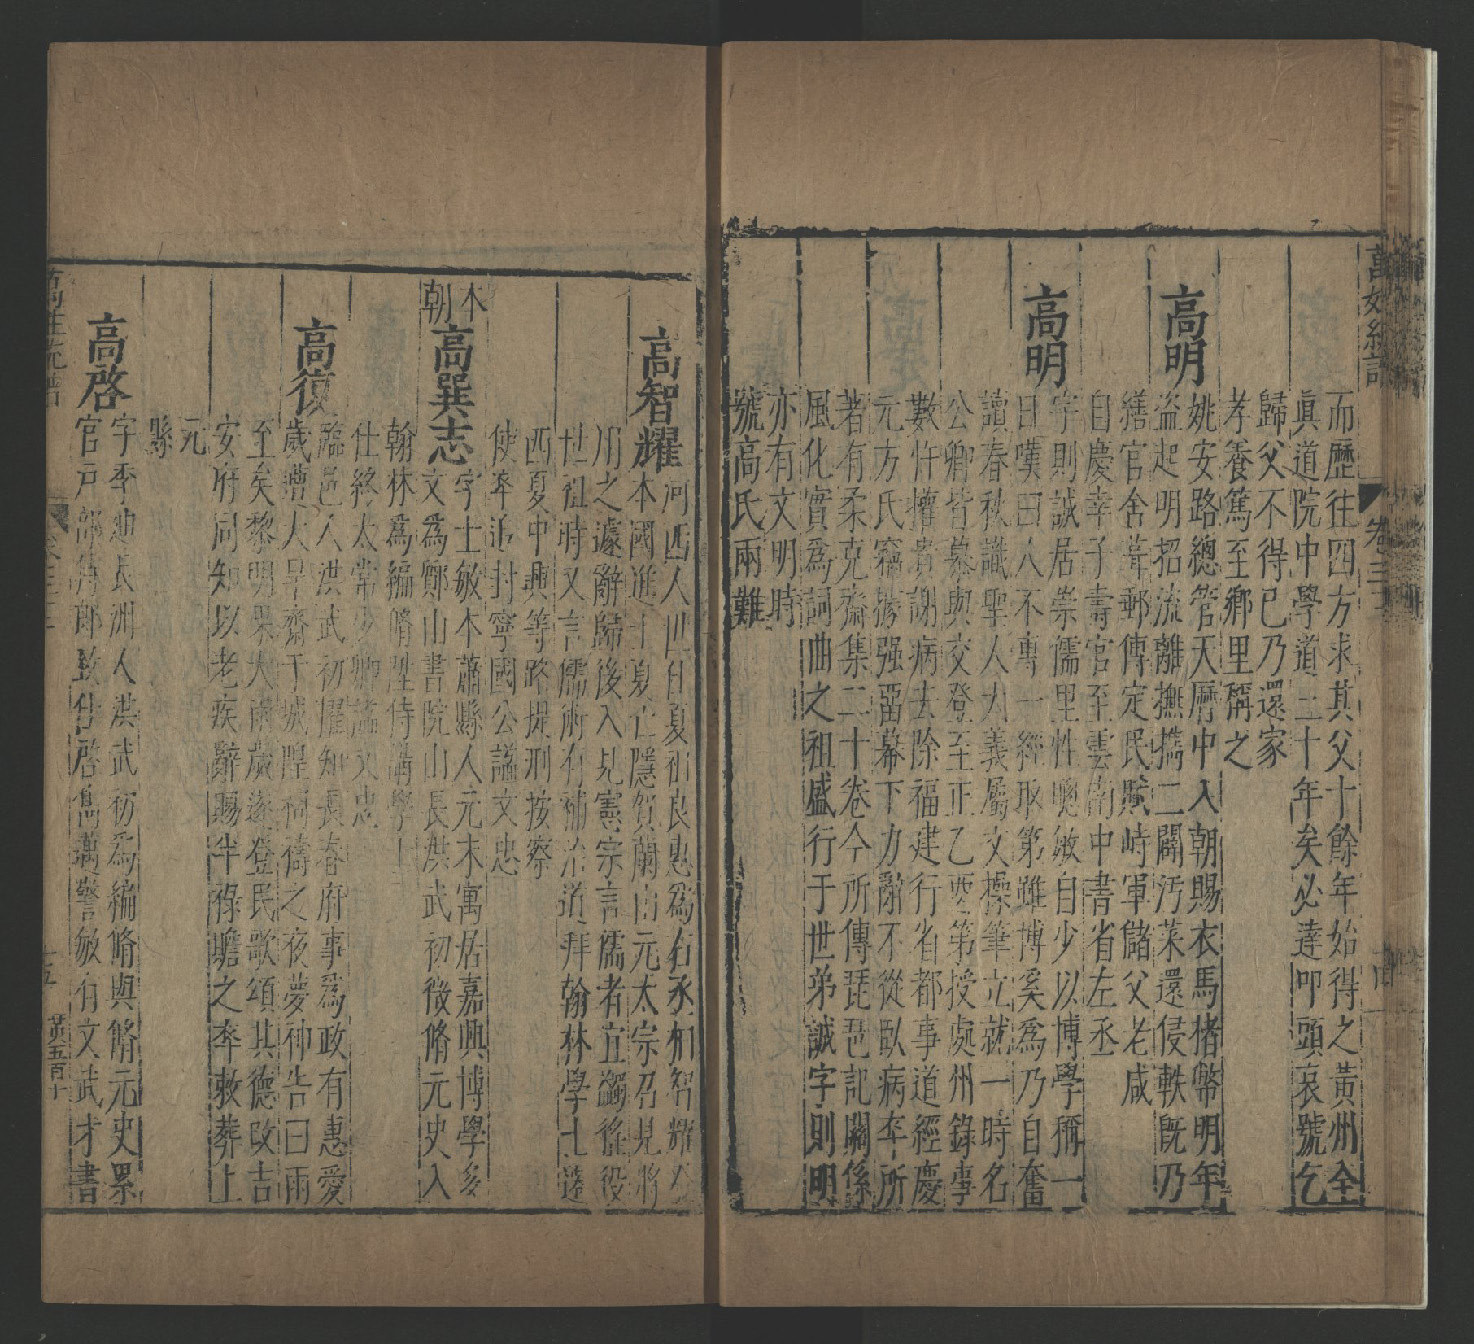 萬姓統譜
卷三十三
而歷往四方求其父十餘年始得之黃州全
眞道院中學道三十年矣必達叩頭哀號乞
歸父不得已乃還家
孝養篤至鄉里稱之
高明
姚安路總管天曆中入朝賜衣馬楮幣明年
盜起明招流離撫擕二闢汚萊還侵軼旣乃
繕官舍葺郵傳定民賦峙軍儲父老咸
自慶幸子壽官至雲南中書省左丞
高明
字則誠居崇儒里性聰敏自少以博學稱一
日嘆曰人不專一經取第雖博奚爲乃自奮
讀春秋識聖人大義屬文操筆立就一時名
公卿皆慕與交登至正乙酉第授處州錄事
數忤權貴謝病去除福建行省都事道經慶
元方氏竊據强畱幕下力辭不從臥病卒所
著有柔克齋集二十卷今所傳琵琶記關係
風化實爲詞曲之祖盛行于世弟誠字則明
亦有文明時
號高氏兩難
高智耀
河西人世仕夏祖良惠爲右丞相智耀
本國進士夏亡隱賀蘭山元太宗召見將
用之遽辭歸後入見憲宗言儒者宜蠲徭役
世祖時又言儒術有補治道拜翰林學士遂
西夏中興等路提刑按察
使卒追封寧國公諡文忠
本朝
高巽志
字士敏本蕭縣人元末寓居嘉興博學多
文爲鄭山書院山長洪武初徵脩元史入
翰林爲編脩陞侍講學士
仕終太常少卿諡文忠
高復
臨邑人洪武初擢知長春府事爲政有惠愛
歲遭大旱齋于城隍祠禱之夜夢神告曰雨
至矣黎明果大雨歲遂登民歌頌其德改吉
安府同知以老疾辭賜半祿贍之卒敕葬上
元
縣
高啓
字季迪長洲人洪武初爲編脩與脩元史累
官戶部侍郎致仕啓雋邁警敏有文武才書
萬姓統譜
卷三十三
十五